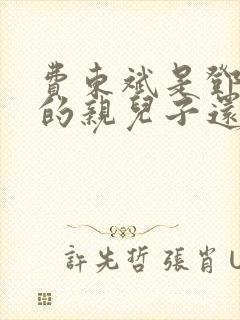 費東斌是鄧
的親兒子還
許先哲 張肖 U